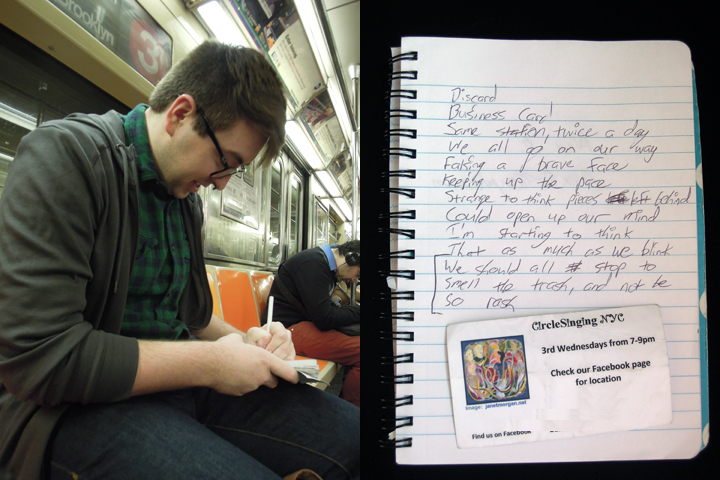 Brooklyn
3
Discard
Business Card
Same station, twice a day
We all go on our way
Faking a brave face
Keeping up the pace
Strange to think pieces left behind
Could open up our mind
I'm starting to think
That as much as we blink
We should all stop to
Smell the trash, and not be
So rash
CircleSinging NYC
3rd Wednesdays from 7-9pm
Check our Facebook page
for location
Image: janetmorgan.net
Find us on Facebook